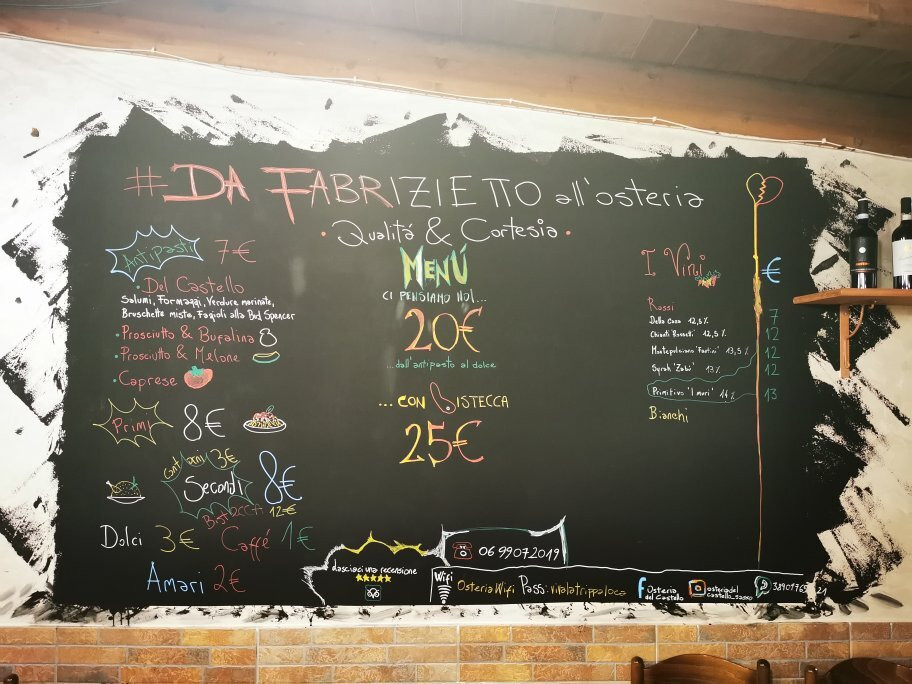 #DA FABRIZIETTO all'osteria
• Qualitá & Cortesia •
Antipasti 7€
• Del Castello
Salumi, Formaggi, Verdure marinate,
Bruschette miste, Fagioli alla Bud Spencer
• Prosciutto & Bufalina
• Prosciutto & Melone
• Caprese
Primi 8€
Contorni 3€
Secondi 8€
12€
Dolci 3€ Caffé 1€
Amari 2€
MENÚ
CI PENSIAMO NOI...
20€
...dall'antipasto al dolce
...CON BISTECCA
25€
I Vini €
Rossi
Della Casa 12,5% 7
Chianti 12,5% 12
Montepulciano 13,5% 12
Syrah 13% 12
Primitivo 'I muri' 14% 13
Bianchi
lasciaci una recensione
06 99072019
Wifi Osteria Wifi Pass: vivalatrippaloca
Osteria
del Castello
osteriadel